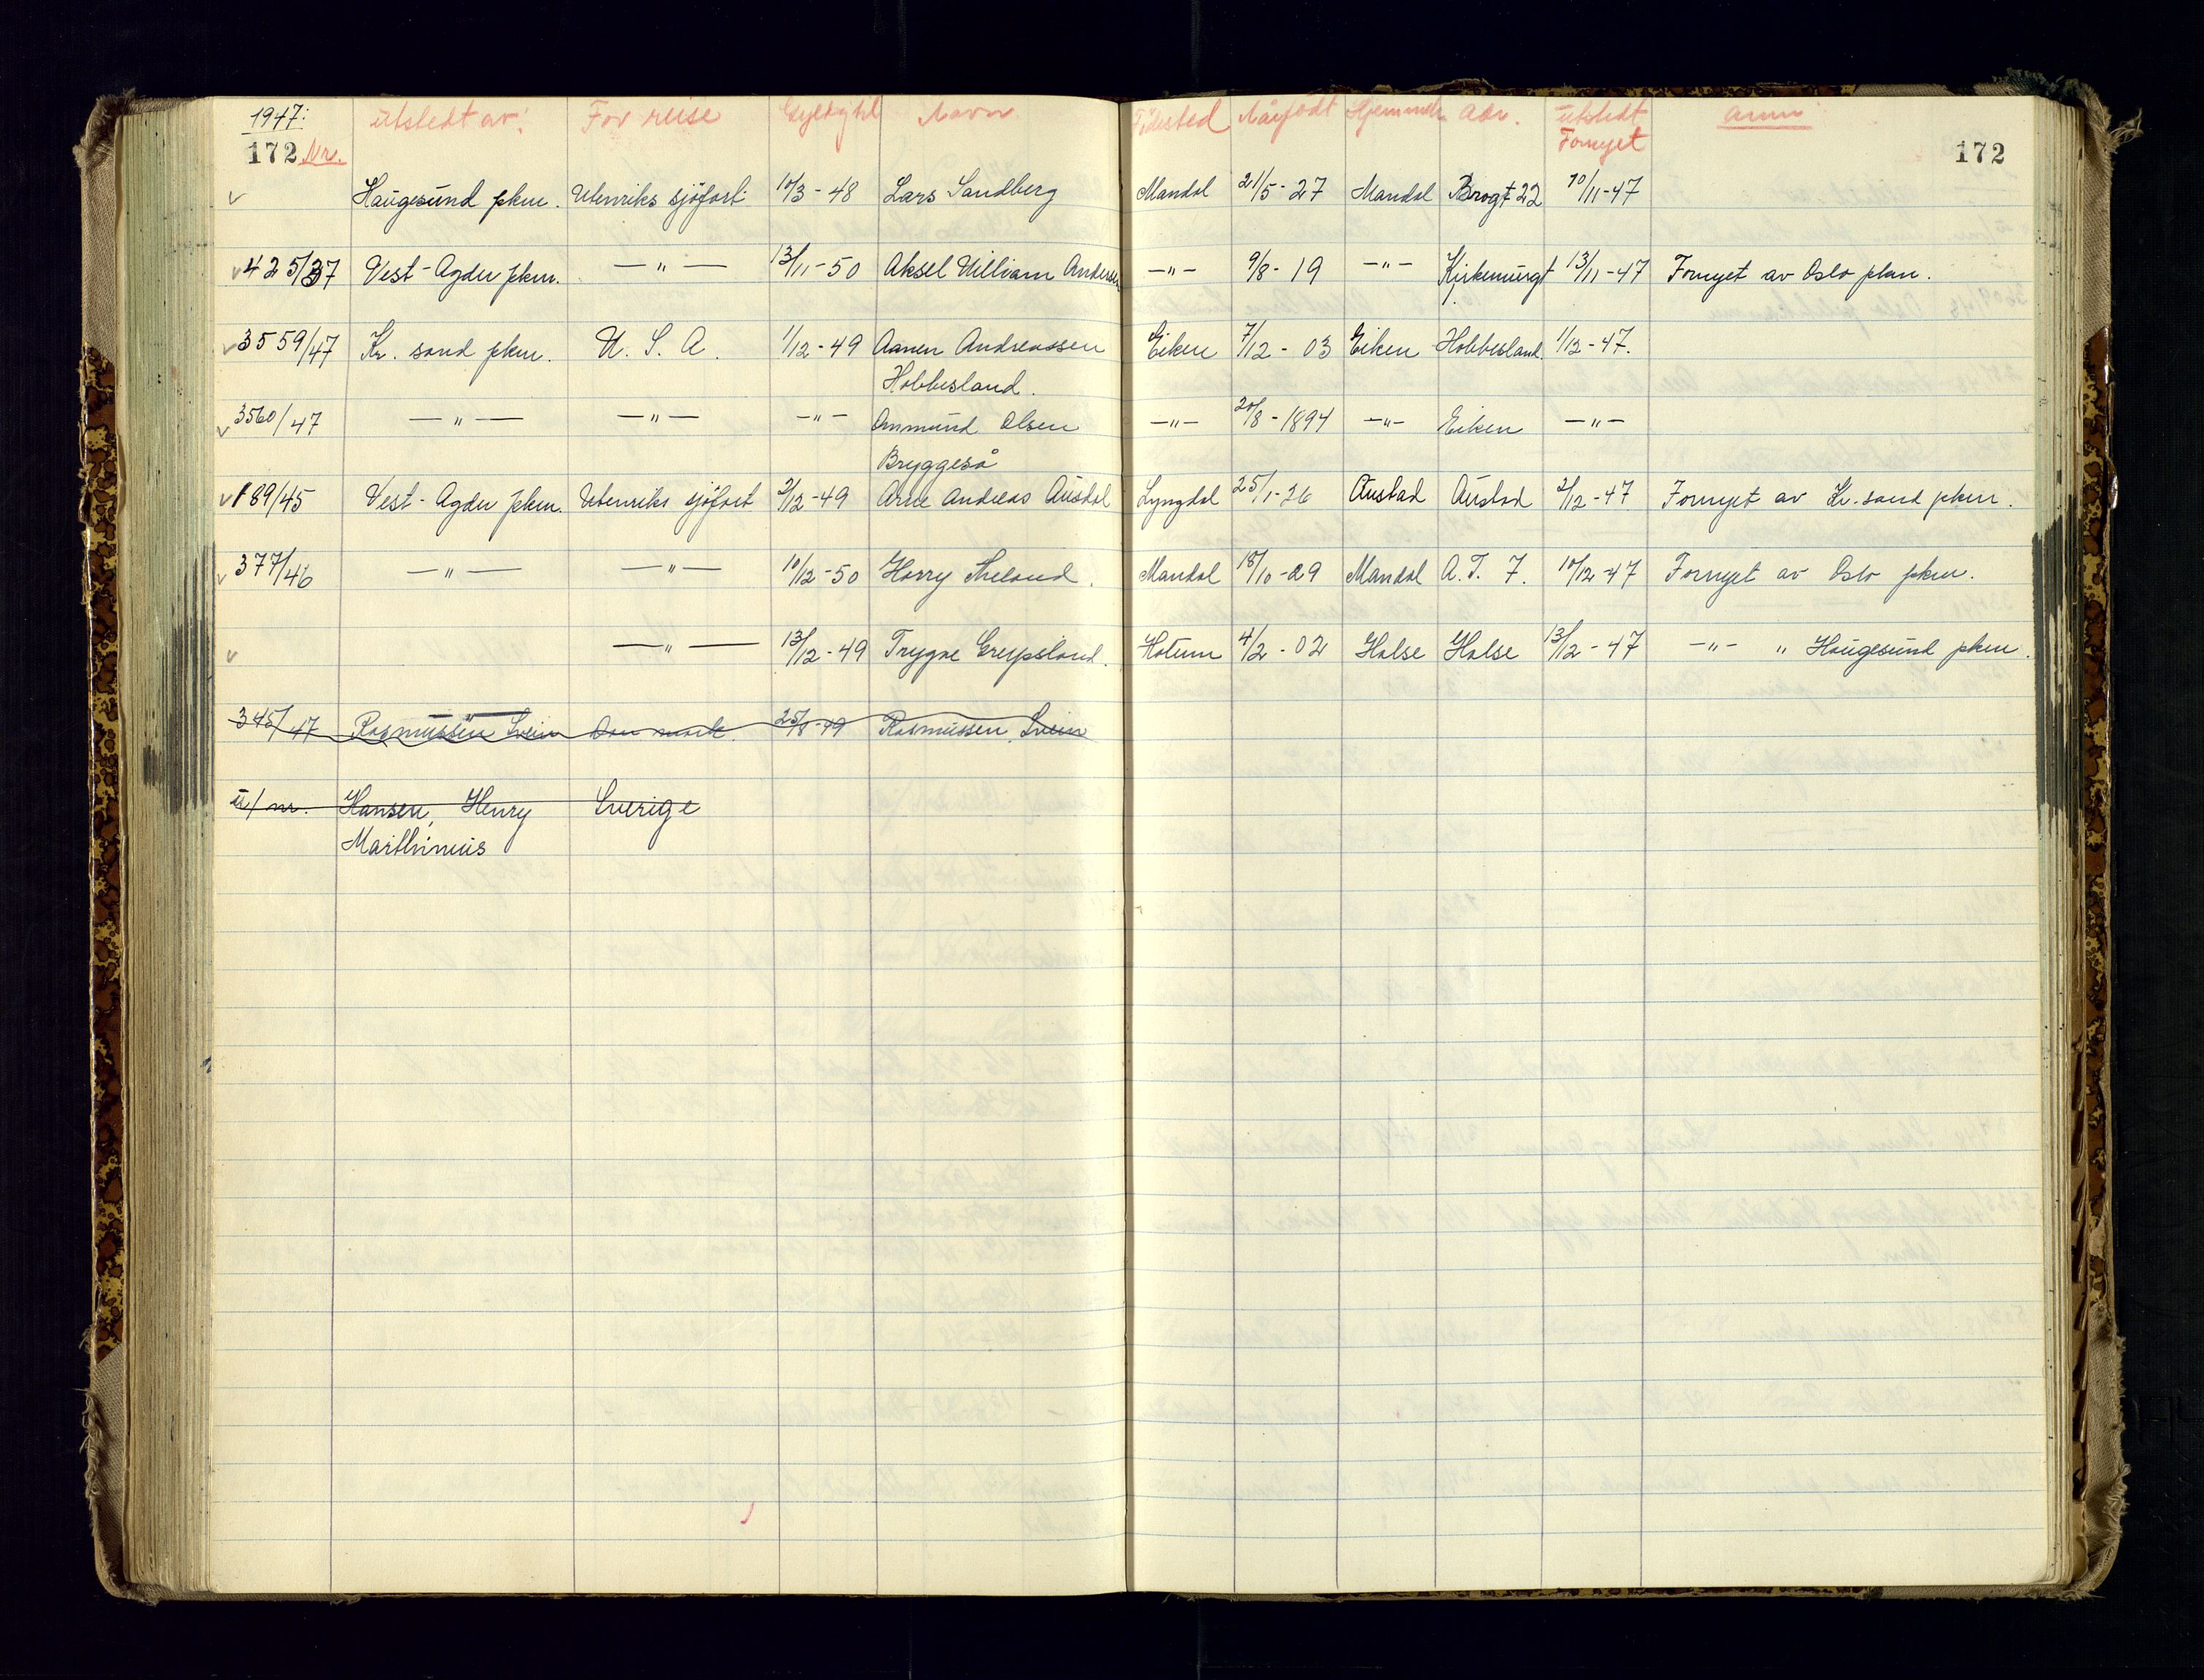 1947: utstedt av: For reise Gyldig til Navn Fødested Når født Hjemmeh. Adr. utstedt Anm:
172 Nr. Fornyet 172
✓ Haugesund pkm. Utenriks sjøfart 10/3-48 Lars Sandberg Mandal 21/5-27 Mandal Brogt 22 10/11-47
✓ 425/37 Vest-Agder pkm. —"— 13/11-50 Aksel William Andersen —"— 9/8-19 —"— Kirkemurgt 13/11-47 Fornyet av Oslo pkm.
✓ 3559/47 Kr.sand pkm. U.S.A. 1/12-49 Aanen Andreassen Eiken 7/12-03 Eiken Hobbesland. 1/12-47.
Hobbesland.
✓ 3560/47 —"— —"— —"— Ommund Olsen —"— 20/8-1894 —"— Eiken —"—
Bryggeså
✓ 189/45 Vest-Agder pkm. Utenriks sjøfart 2/12-49 Arne Andreas Austdal Lyngdal 25/1-26 Austad Austad 2/12-47 Fornyet av Kr.sand pkm.
✓ 377/46 —"— —"— 10/12-50 Harry Skeland. Mandal 18/10-29 Mandal A.T. 7. 10/12-47 Fornyet av Oslo pkm.
✓ —"— 13/12-49 Trygve Greipsland. Holum 4/2-02 Halse Halse 13/12-47 —"— " Haugesund pkm.
345/47 Rasmussen Svein Danmark. 25/8-49 Rasmussen, Svein
u/nr. Hansen, Henry Sverige
Marthinius